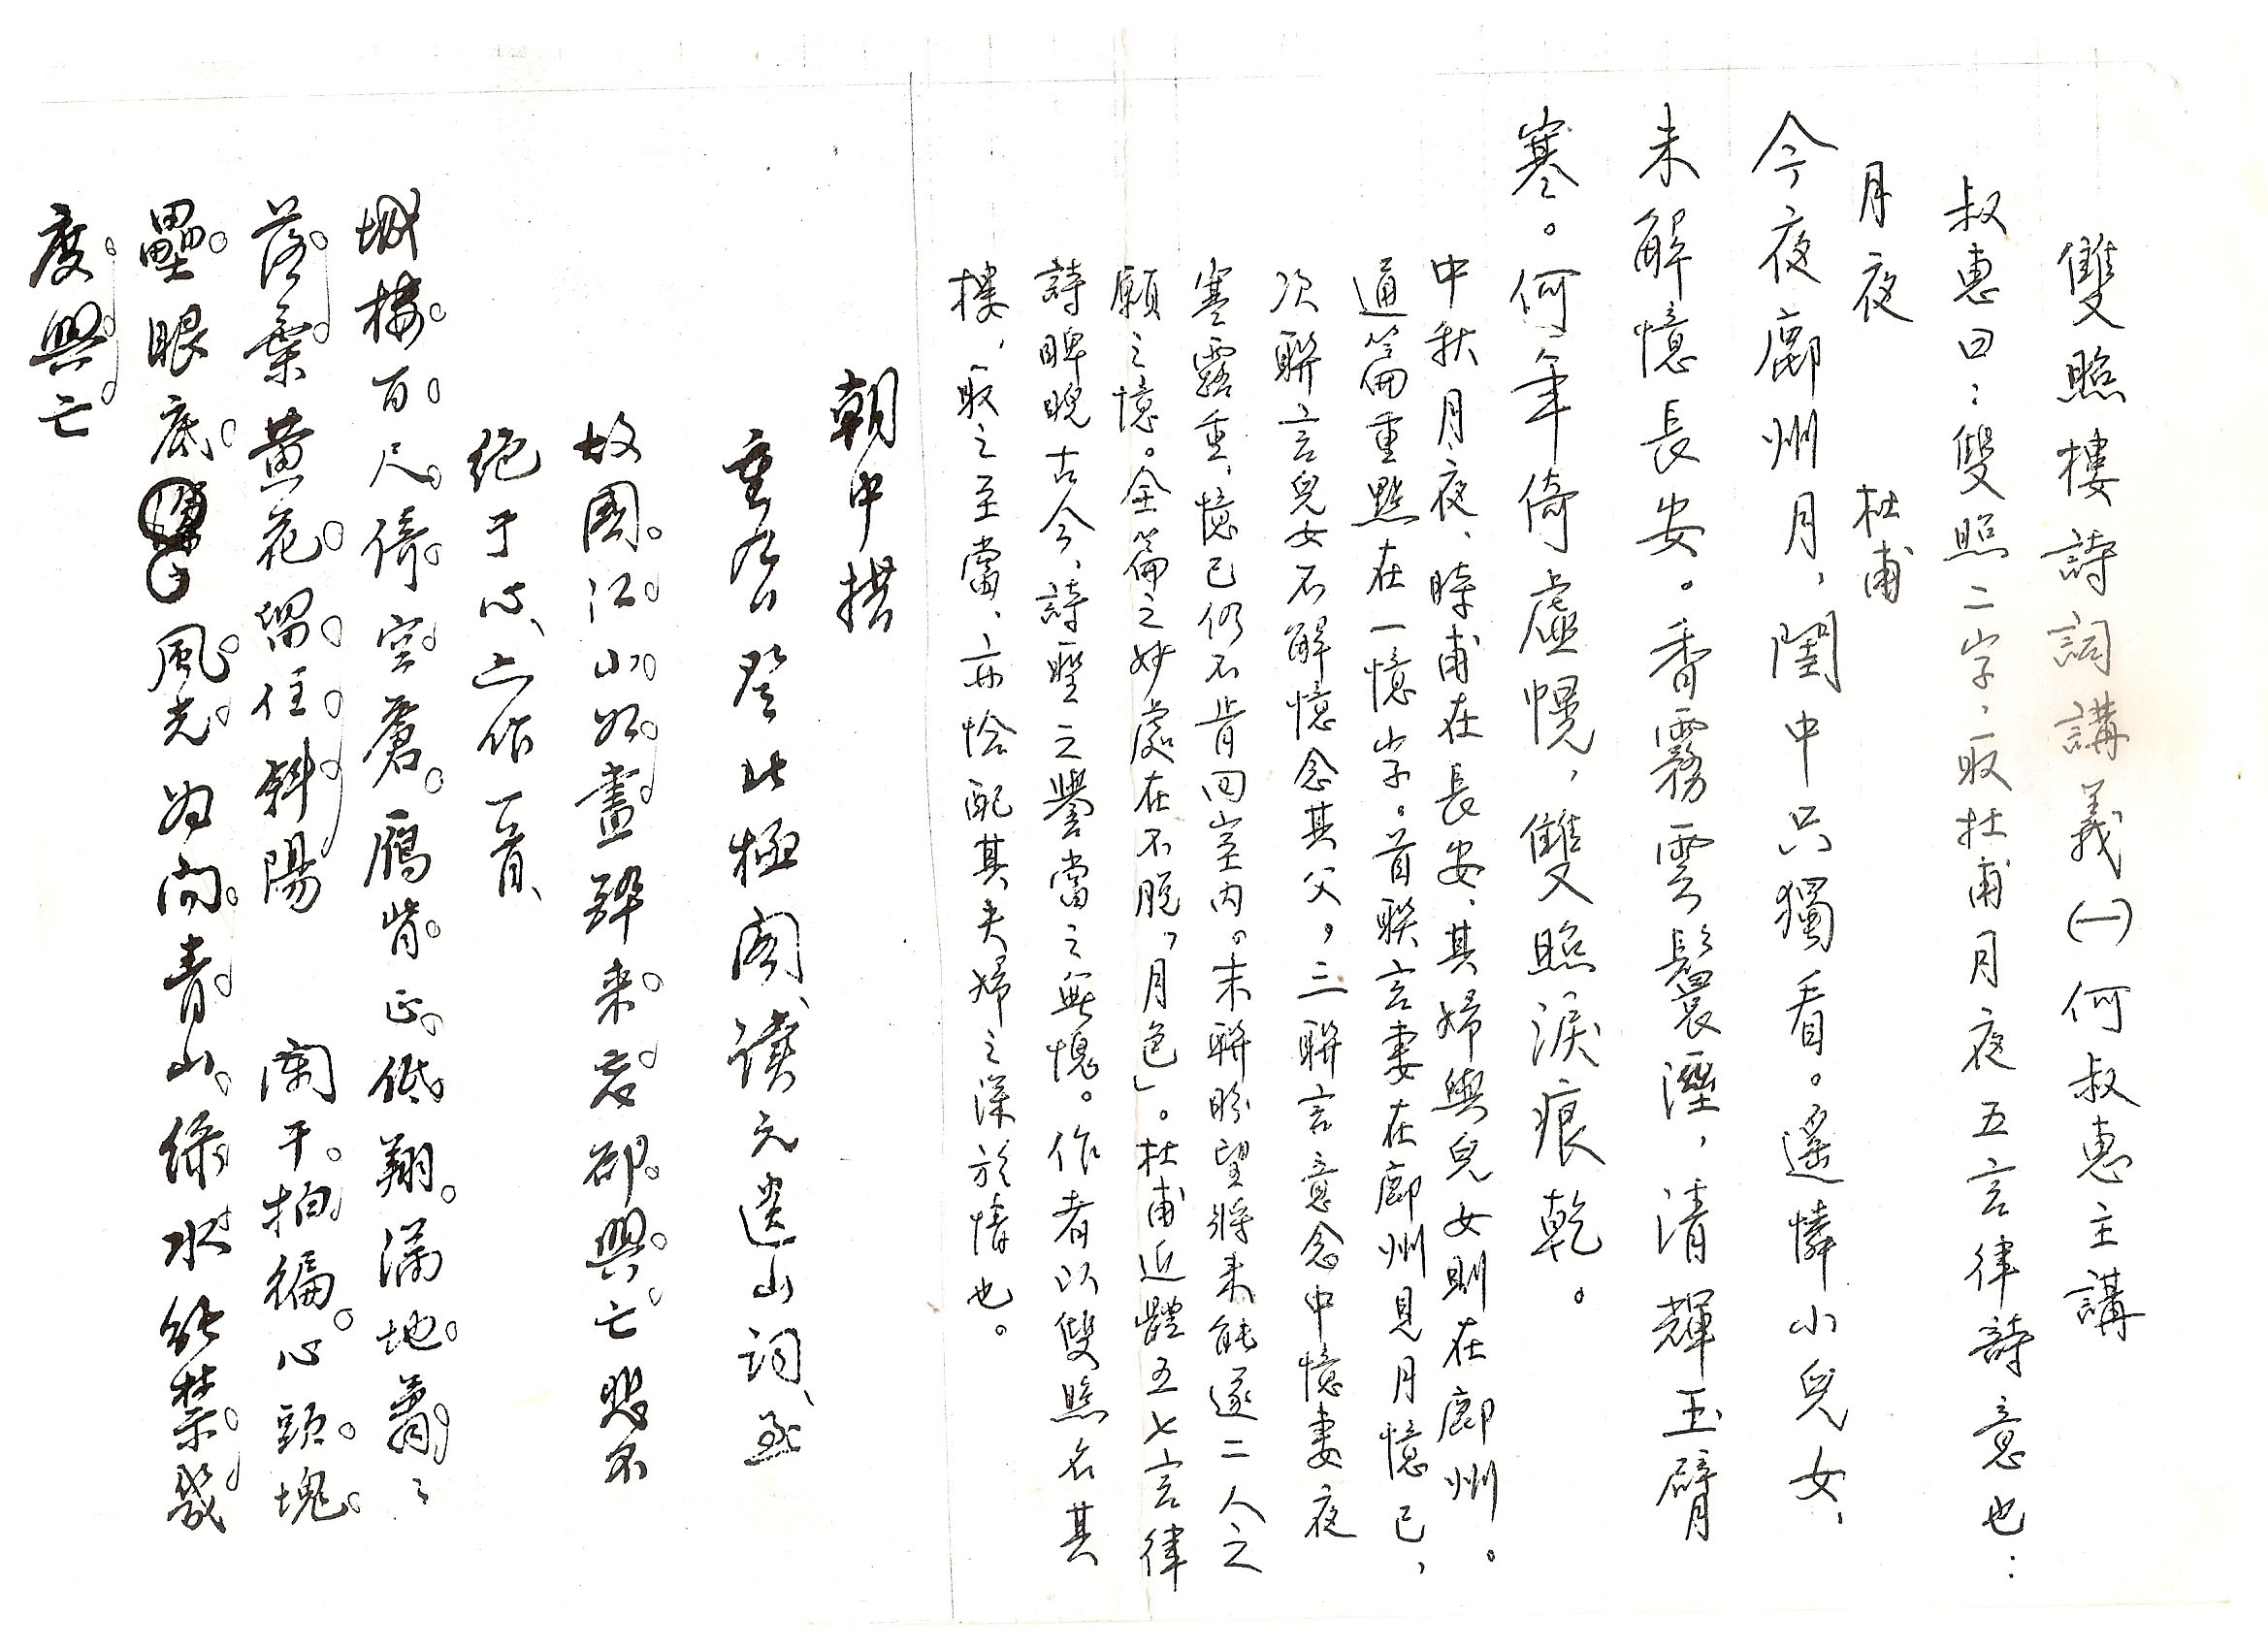 雙照樓詩詞講義(一)何叔惠主講
叔惠曰：雙照二字，取杜甫月夜五言律詩意也：
月夜　杜甫
今夜鄜州月，閨中只獨看。遙憐小兒女、
未解憶長安。香霧雲鬟溼，清輝玉臂
寒。何年倚虛幌，雙照淚痕乾。
中秋月夜、時甫在長安、其婦與兒女則在鄜州。
通篇重點在一憶字。首聯言妻在鄜州見月憶己，
次聯言兒女不解憶念其父，三聯言意念中憶妻夜
寒露重，憶己仍不肯回室內。末聯盼望將來能遂二人之
願之憶。全篇之妙處在不脫「月色」。杜甫近體五七言律
詩睥睨古今、詩聖之譽當之無愧。作者以雙照名其
樓，取之至當、亦恰配其夫婦之深於情也。
朝中措
重九日登北極閣、讀元遺山詞、至
故國江山如畫醉來忘卻興亡悲不
絕于心、亦作一首、
城樓百尺倚空蒼。雁背正低翔。滿地蕭々
落葉黃花留住斜陽　闌干拍徧。心頭塊
壘眼底風光為問青山綠水能禁幾
度興亡